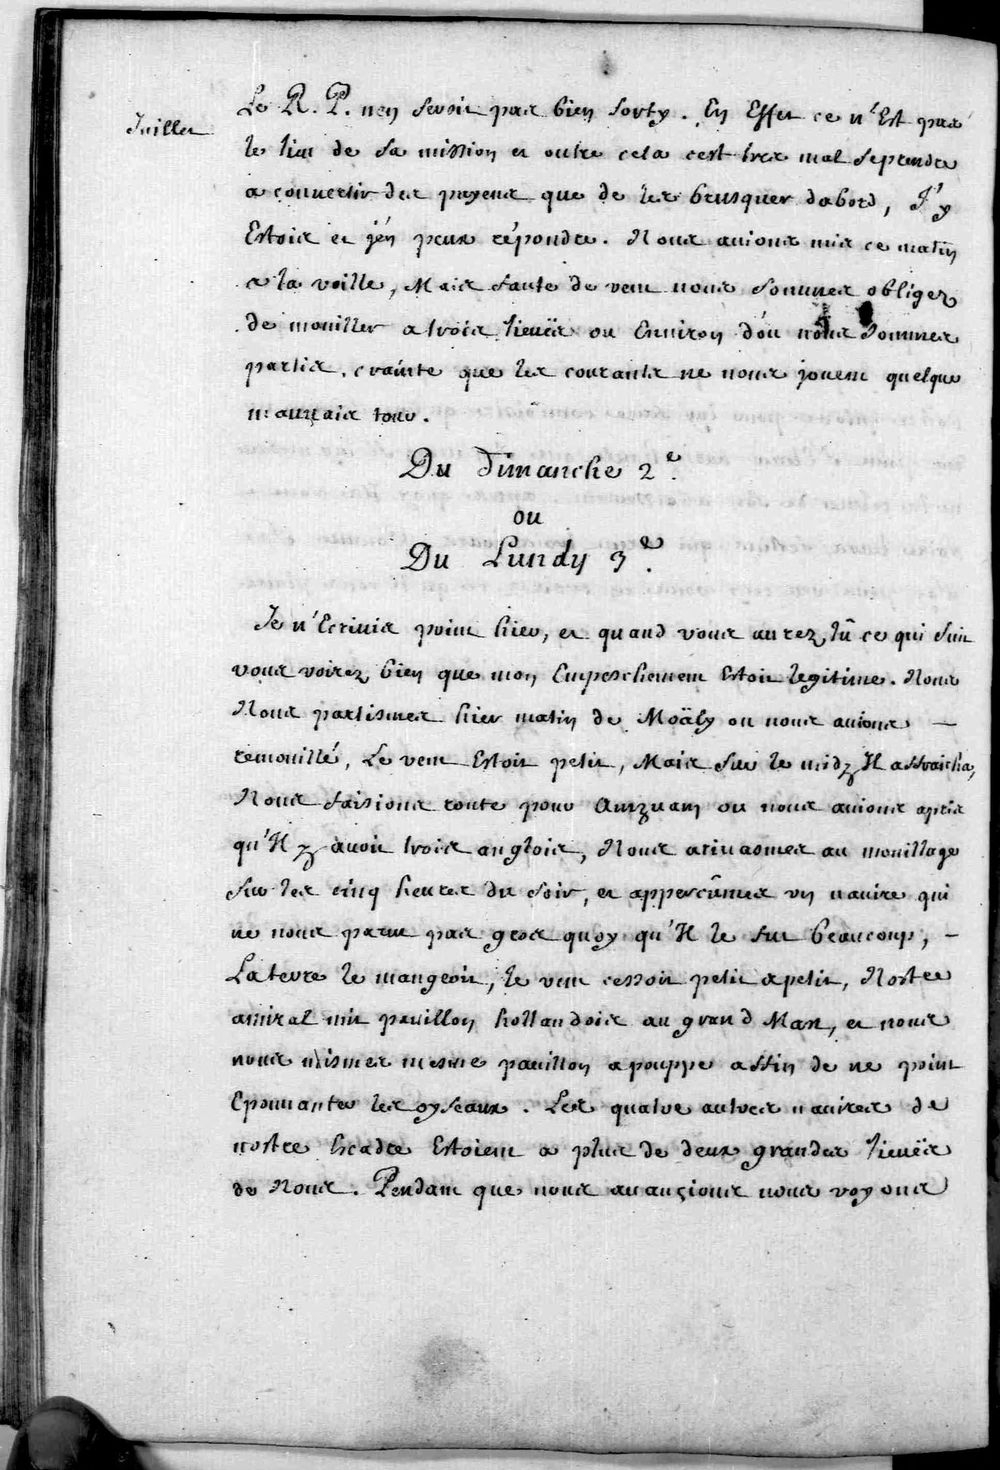 Juillet
Le R. P. n'en seroit pas bien sorty. En Effet ce n'Est pas
le lieu de sa mission et outre cela cest tres mal seprendre
a convertir des payens que de les brusquer dabord, J'y
Estois et j'én peux répondre. Nous auions mis ce matin
a la voille, Mais faute de vent nous sommes obligez
de mouiller a trois lieuës ou Enuiron d'ou nous sommes
partis. crainte que les courants ne nous jouent quelque
mauuais tour.
Du Dimanche 2.e
ou
Du Lundy 3.e
Je n'Ecriuis point hier, et quand vous aurez lû ce qui suit
vous voirez bien que mon Empeschement Estoit legitime. Nous
Nous partismes hier matin de Moäly ou nous auions —
remouillé, Le vent Estoit petit, Mais sur le midy Il affraicha,
Nous faisions route pour Amzuam ou nous auions apris
qu'Il y auoit trois anglois, Nous ariuasmes au mouillage
sur les cinq heures du soir, et apperçûmes vn nauire qui
ne nous parut pas gros quoy qu'Il le fut beaucoup, —
La terre le mangeoit, le vent cessoit petit a petit, Nostre
amiral mit pauillon hollandois au grand Mas, et nous
nous mismes mesme pauillon a pouppe affin de ne point
Epouuanter les oyseaux. Les quatre autres nauires de
nostre Escadre Estoient a plus de deux grandes lieuës
de Nous. Pendant que nous auançions nous voyons